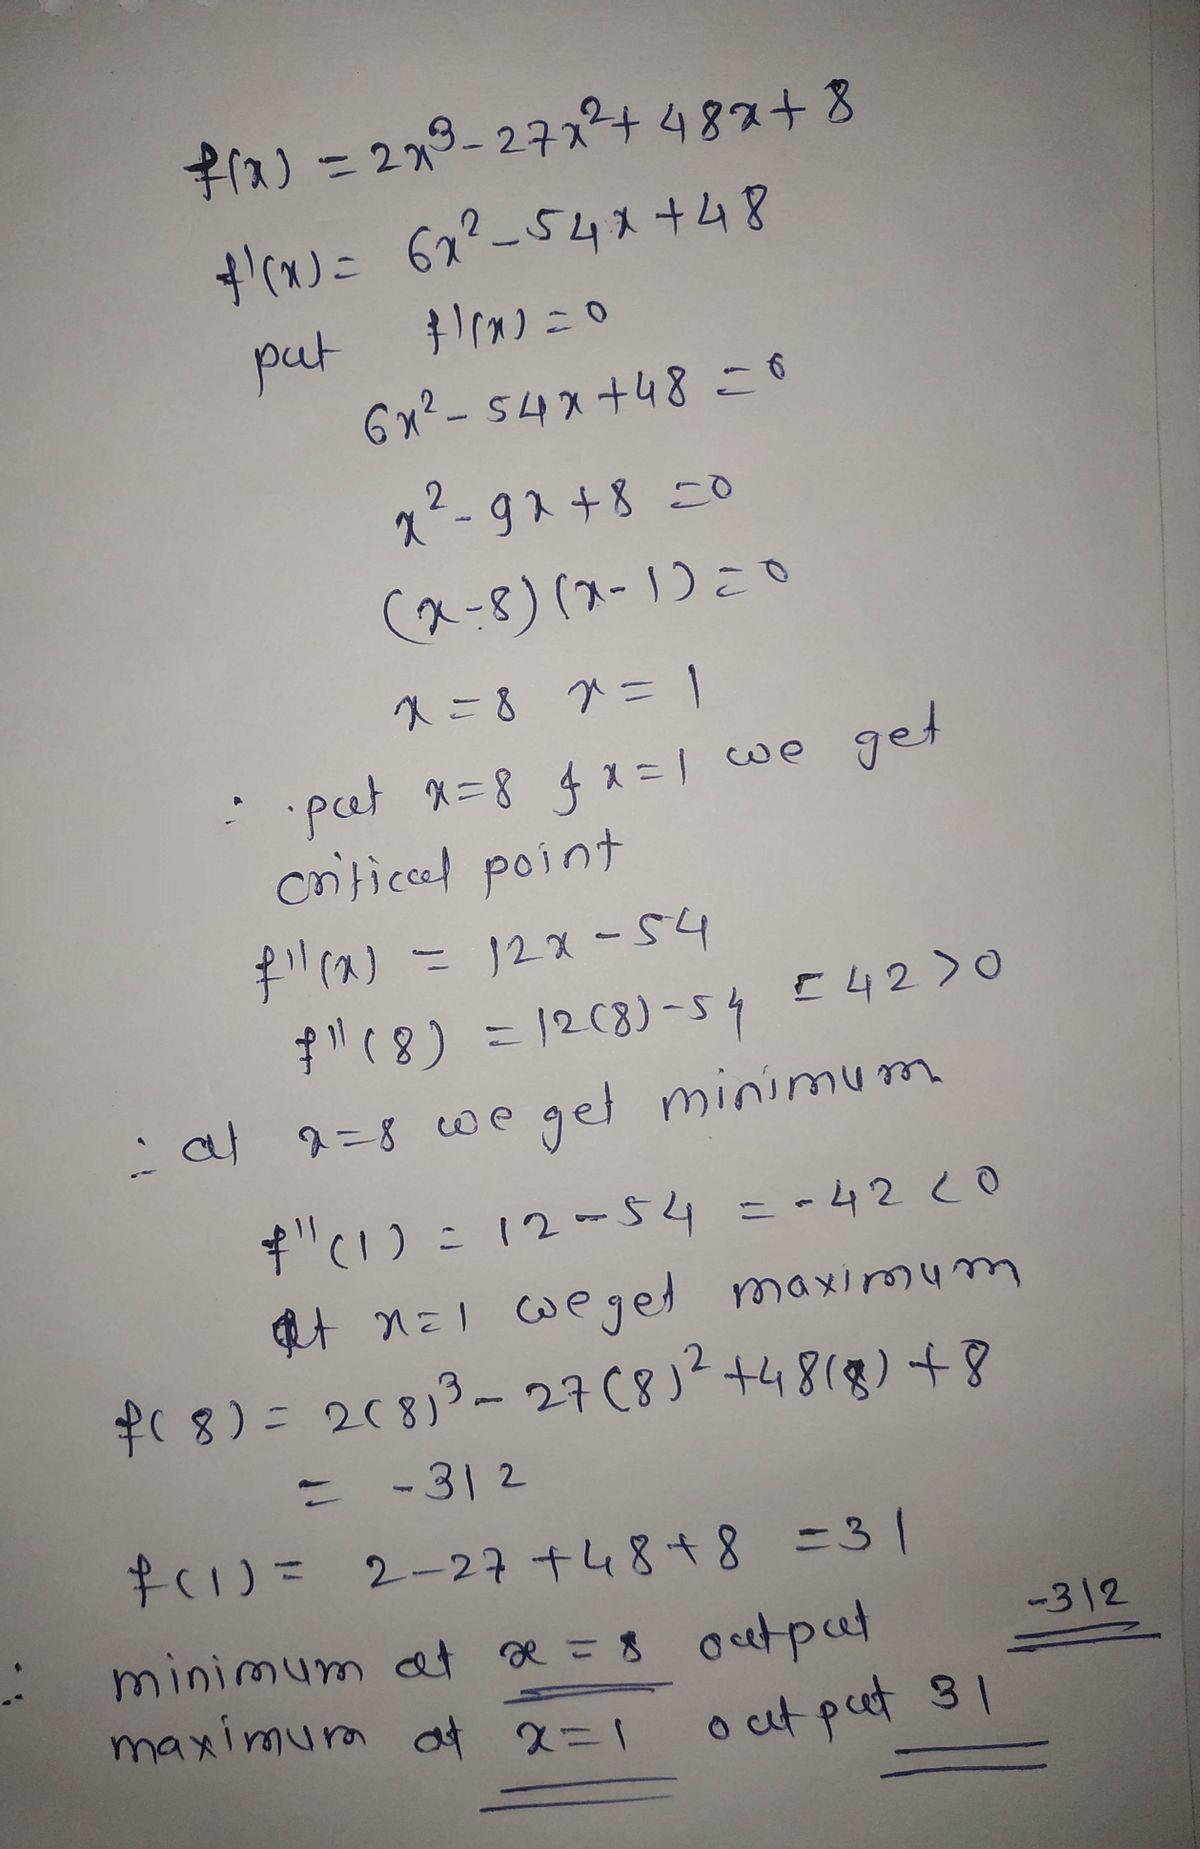 f(x) = 2x³ - 27x² + 48x + 8
f'(x) = 6x² - 54x + 48
put f'(x) = 0
6x² - 54x + 48 = 0
x² - 9x + 8 = 0
(x - 8) (x - 1) = 0
x = 8 x = 1
∴ put x = 8 & x = 1 we get
critical point
f''(x) = 12x - 54
f''(8) = 12(8) - 54 = 42 > 0
∴ at x = 8 we get minimum
f''(1) = 12 - 54 = - 42 < 0
at x = 1 we get maximum
f(8) = 2(8)³ - 27(8)² + 48(8) + 8
= - 312
f(1) = 2 - 27 + 48 + 8 = 31
∴ minimum at x = 8 output -312
maximum at x = 1 output 31